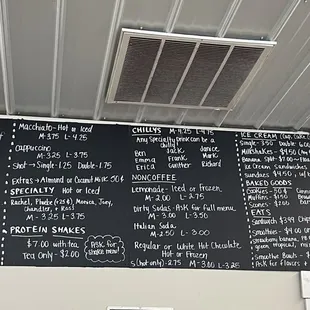 Macchiato - Hot or Iced
M-3.75 L-4.25
Cappuccino
M-3.25 L-3.75
Shot → Single 1.25 Double 1.75
Extras → Almond or Coconut Milk 50¢
SPECIALTY Hot or Iced
Rachel, Phoebe (+25¢) Monica, Joey,
Chandler, + Ross
M-3.25 L-3.75
PROTEIN SHAKES
$7.00 with tea
Tea Only - $2.00
Ask for
shake menu!
CHILLYS M 4.25 L-4.75
Any Specialty drink can be
a chilly!
Ben Jack Janice
Emma Frank Mark
Erica Gunther Richard
NONCOFFEE
Lemonade - Iced or frozen
M-2.00 L-2.75
Dirty Sodas - Ask for full menu
M-3.00 L-3.50
Italian Soda
M-2.50 L-3.00
Regular or White Hot Chocolate
Hot or Frozen
S (hot only) - 2.75 M-3.00 L-3.25
ICE CREAM
Single - 3.50 Double
Milkshakes - $4.50
Banana Split - $7.00
Ice Cream Sandwiches
Sundaes $4.50
BAKED GOODS
Cookies
Muffins
Scones
EATS
Sandwich $3.99 Chips
Smoothies -
strawberry banana,
green, tropical,
Ask for flavors